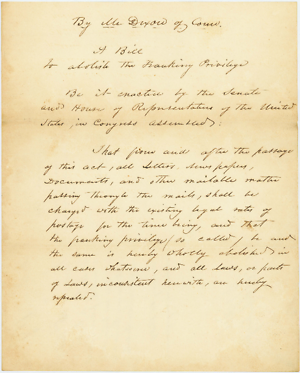 By Mr Dixon of Conn.
A Bill
To abolish the Franking Privilege
Be it enacted by the Senate
and House of Representatives of the United
States in Congress assembled:
That from and after the passage
of this act, all letters, newspapers,
Documents, and other mailable matter
passing through the mails, shall be
charged with the existing legal rates of
postage for the time being, and that
the franking privilege (so called) be and
the same is hereby wholly abolished in
all cases whatsoever, and all laws, or parts
of laws, inconsistent herewith, are hereby
repealed.